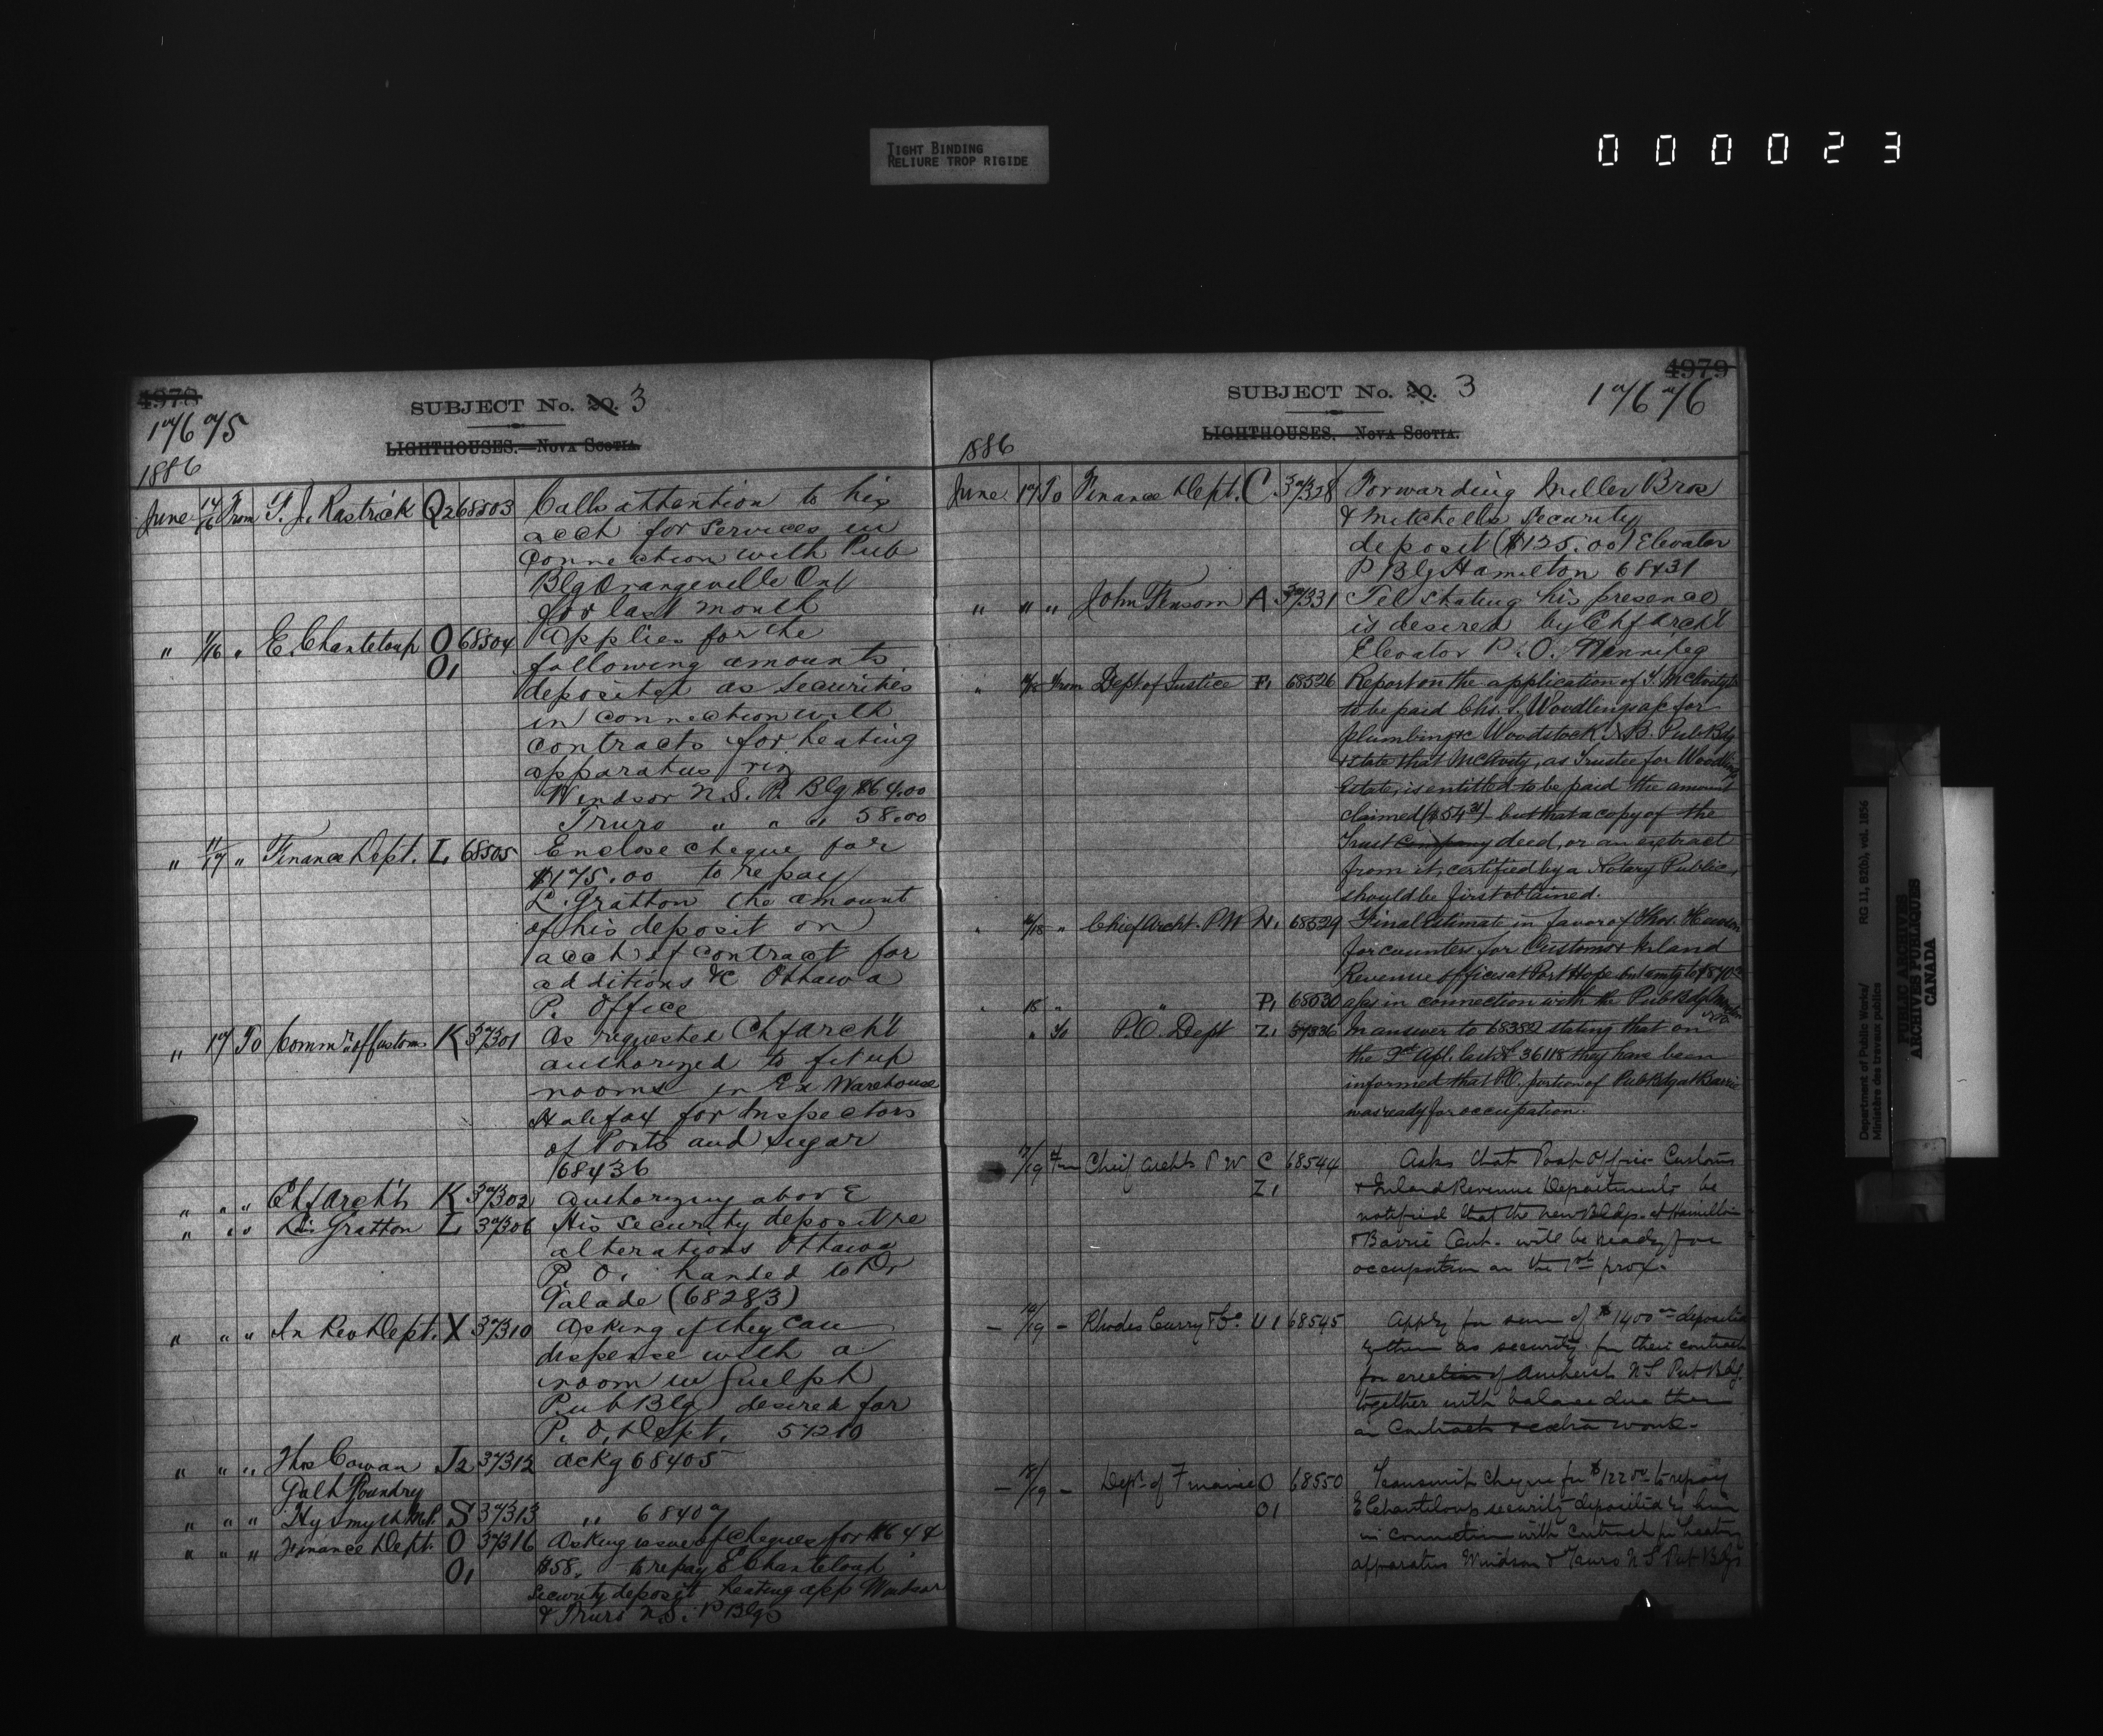 TIGHT BINDING
RELIURE TROP RIGIDE
000023
4978
17675
SUBJECT No. 20. 3
LIGHTHOUSES.—NOVA SCOTIA.
1886
June 14/16 From T. J. Rastrick Q2 68503 Calls attention to his
acct for services in
connection with Pub
Blg Orangeville Ont
for last month
" /16 " E. Chanteloup O 68504 Applies for the
O1 following amounts
deposited as securities
in connection with
contracts for heating
apparatus viz
Windsor N.S. P. Blg $64.00
Truro " " " 58.00
" 11/17 " Finance Dept. L 68505 Enclose cheque for
$175.00 to repay
L. Gratton the amount
of his deposit on
acct of contract for
additions &c Ottawa
P. Office
" 17 To Commr of Customs K 37301 As requested Chf Archt
authorized to fit up
rooms in Ex Warehouse
Halifax for Inspectors
of Ports and Sugar
68436
" " " Chf Archt K 37302 Authorizing above
" " " Ls Gratton L 37306 His security deposit re
alterations Ottawa
P. O. handed to Dr
Valade (68283)
" " " In Rev Dept. X 37310 Asking if they can
dispense with a
room in Guelph
Pub Blg desired for
P. O. Dept. 57210
" " " Thos Cowan J2 37312 Ackg 68405
Galt Foundry
" " " Hy Smyth M.P. S 37313 " 68407
" " " Finance Dept. O 37316 Asking issue of cheques for $64 &
O1 $58. to repay E Chanteloup
Security deposit heating app Windsor
& Truro N.S. P Blgs
4979
SUBJECT No. 20. 3
17676
LIGHTHOUSES. NOVA SCOTIA.
1886
June 17 To Finance Dept. C. 37328 Forwarding Miller Bros
& Mitchells security
deposit ($125.00) Elevator
P Blg Hamilton 68431
" " " John Fensom A 37331 Tel stating his presence
is desired by Chf Archt
Elevator P. O. Winnipeg
" From Dept of Justice P1 68526 Report on the application of T. McAvity
to be paid Chs. S. Woodlings a/c for
plumbing &c Woodstock N.B. Pub Bdg
& state that McAvity, as Trustee for Woodling
Estate, is entitled to be paid the amount
claimed but that a copy of the
Trust Company deed, or an extract
from it, certified by a Notary Public,
should be first obtained.
" /18 " Chief Archt. P.W N1 68529 Final Estimate in favor of Thos.
for counters for Customs & Inland
Revenue offices at Port Hope
" 18 " " P1 68530 a/cs in connection with the Pub Bdg
" " To P.O. Dept Z1 37336 In answer to 68382 stating that on
the 2nd Apl. last 36118 they have been
informed that P.O. portion of Pub Bdg at Barrie
was ready for occupation.
17/19 Fm Chief Archts P W C 68544 Asks that Post Office Customs
Z1 & Inland Revenue Departments be
notified that the new Bldgs. at Hamilton
& Barrie Ont. will be ready for
occupation on the 1st prox.
— /19 — Rhodes Curry & Co. U1 68545 Apply for sum of $1400 deposited
by them as security for their contract
for erection of Amherst N S Pub Bdg.
together with balance due them
on Contract & extra work.
— 18/19 — Dept. of Finance O 68550 Transmit cheque for $122 to repay
O1 E Chanteloup security deposited by him
in connection with contract for heating
apparatus Windsor & Truro N S Pub Bdgs
Department of Public Works/
Ministère des travaux publics
RG 11, B2(b), vol. 1856
PUBLIC ARCHIVES
ARCHIVES PUBLIQUES
CANADA